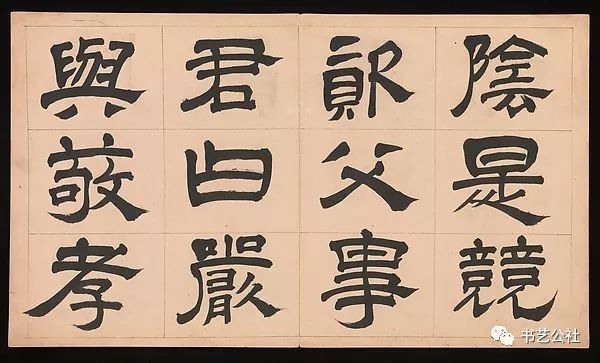 陰是競
資父事
君曰嚴
與敬孝
书艺公社